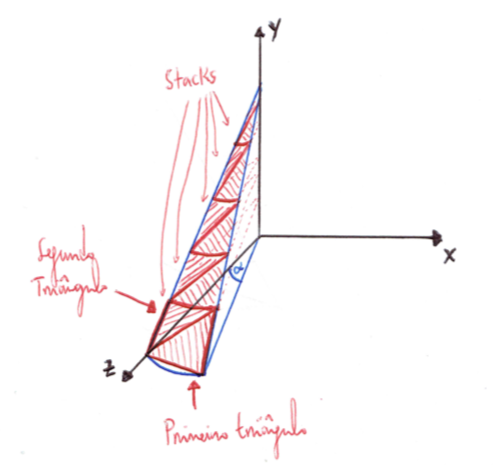 Y
Stacks
X
α
Segundo
Triângulo
Z
Primeiro triângulo